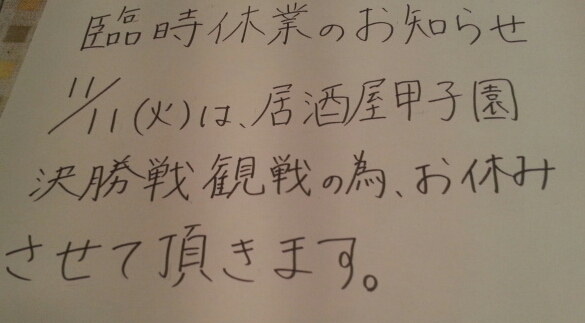 臨時休業のお知らせ
11/11(火)は、居酒屋甲子園
決勝戦観戦の為、お休み
させて頂きます。